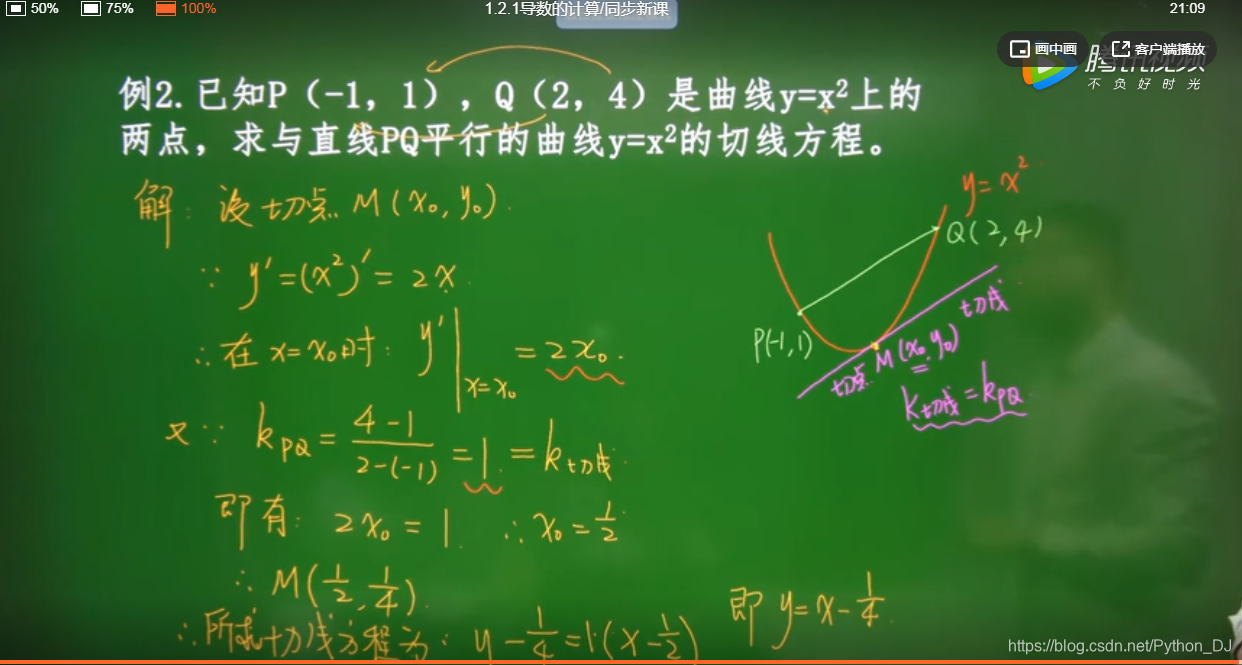 50% 75% 100% 1.2.1导数的计算/同步新课 21:09
画中画 客户端播放
腾讯视频
不负好时光
例2.已知P（-1，1），Q（2，4）是曲线y=x²上的
两点，求与直线PQ平行的曲线y=x²的切线方程。
解：设切点M(x₀,y₀).
∵ y'=(x²)'=2x.
∴在x=x₀时：y'|x=x₀ =2x₀.
又∵ kPQ=4-1/2-(-1)=1.=k切线.
即有：2x₀=1. ∴x₀=1/2.
∴M(1/2,1/4).
∴所求切线方程为：y-1/4=1·(x-1/2)
即y=x-1/4.
y=x²
Q(2,4)
P(-1,1)
切线
切点 M(x₀,y₀)
k切线=kPQ
https://blog.csdn.net/Python_DJ